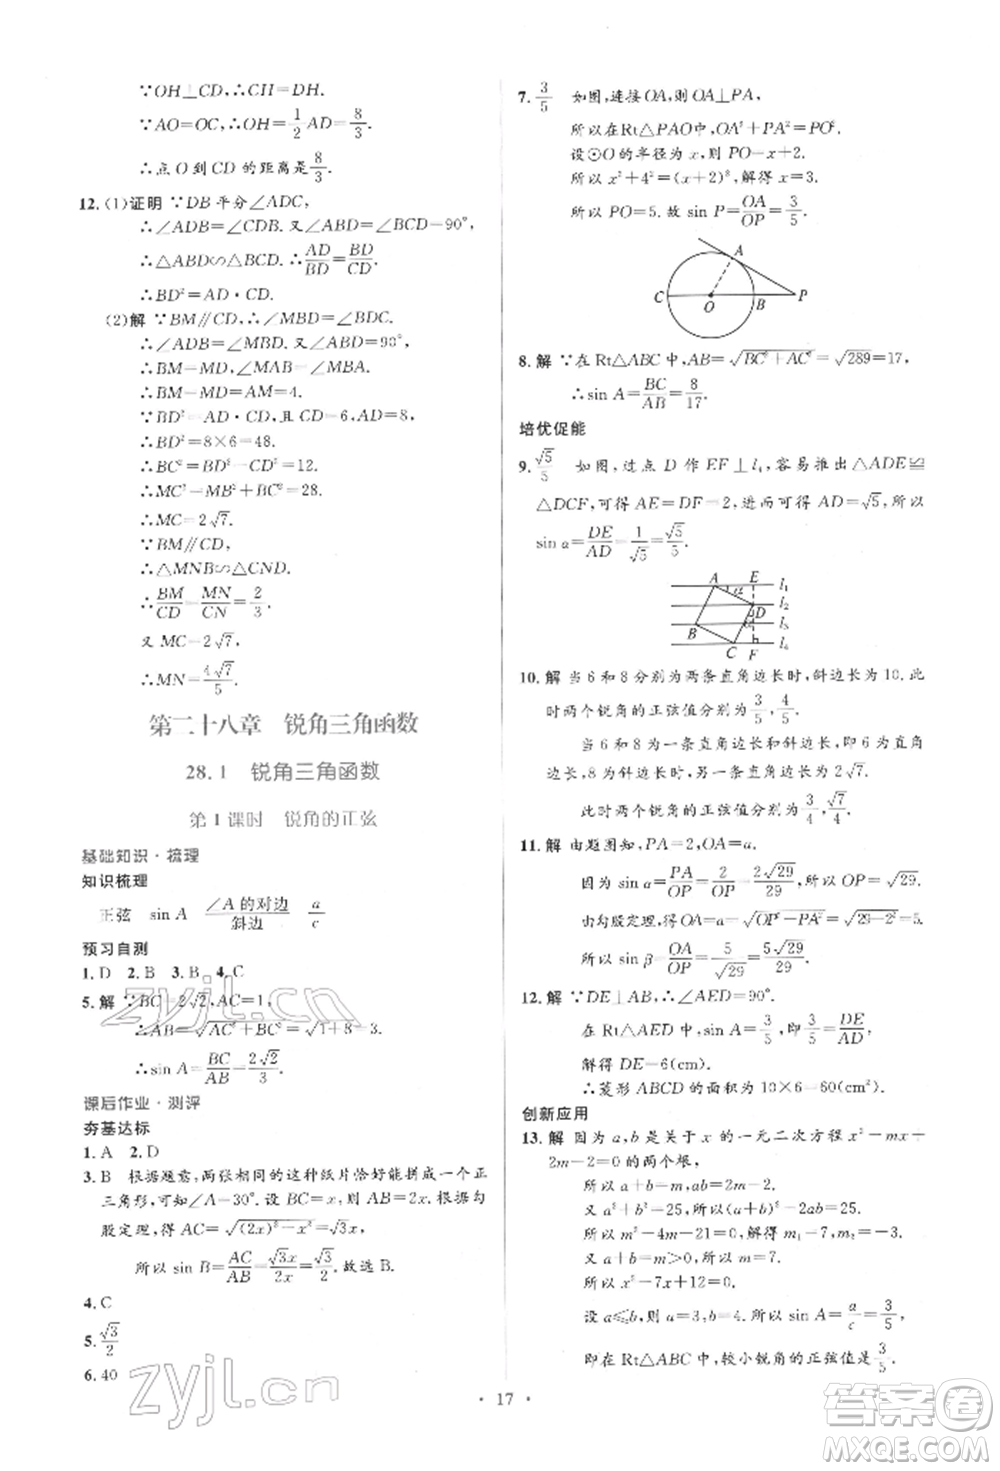 ∵OH⊥CD,∴CH=DH.
∵AO=OC,∴OH=1/2 AD=8/3.
∴点O到CD的距离是8/3.
12.(1)证明 ∵DB平分∠ADC,
∴∠ADB=∠CDB.又∠ABD=∠BCD=90°,
∴△ABD∽△BCD.∴AD/BD=BD/CD.
∴BD²=AD·CD.
(2)解 ∵BM∥CD,∴∠MBD=∠BDC.
又∠ADB=∠CDB,∠ABD=90°,
∴BM=MD,∠MAB=∠MBA.
∴BM=MD=AM=4.
∵BD²=AD·CD,且CD=6,AD=8,
∴BD²=8×6=48.
∴BC²=BD²-CD²=12.
∴MC²=MB²+BC²=28.
∴MC=2√7.
∵BM∥CD,
∴△MNB∽△CND.
∴BM/CD=MN/CN=2/3.
又MC=2√7,
∴MN=4√7/5.
第二十八章 锐角三角函数
28.1 锐角三角函数
第1课时 锐角的正弦
基础知识·梳理
知识梳理
正弦 sin A ∠A的对边/斜边 a/c
预习自测
1.D 2.B 3.B 4.C
5.解 ∵BC=2√2,AC=1,
∴AB=√(AC²+BC²)=3.
∴sin A=BC/AB=2√2/3.
课后作业·测评
夯基达标
1.A 2.D
3.B 根据题意,两张相同的这种纸片恰好能拼成一个正
三角形,可知∠A=30°.设BC=x,则AB=2x.根据勾
股定理,得AC=√((2x)²-x²)=√3x.
所以sin B=AC/AB=√3x/2x=√3/2.故选B.
4.C
5.√3/2
6.40
7.3/5 如图,连接OA,则OA⊥PA,
所以在Rt△PAO中,OA²+PA²=PO².
设⊙O的半径为x,则PO=x+2.
所以x²+4²=(x+2)²,解得x=3.
所以PO=5.故sin P=OA/OP=3/5.
A
C O B P
8.解 ∵在Rt△ABC中,AB=√(BC²+AC²)=√289=17,
∴sin A=BC/AB=8/17.
培优促能
9.√5/5 如图,过点D作EF⊥l₁,容易推出△ADE≌
△DCF,可得AE=DF=2,进而可得AD=√5,所以
sin α=DE/AD=1/√5=√5/5.
A E l₁
α
D l₂
B l₃
C F l₄
10.解 当6和8分别为两条直角边长时,斜边长为10.此
时两个锐角的正弦值分别为3/5,4/5.
当6和8为一条直角边长和斜边长,即6为直角边长,
8为斜边长时,另一条直角边长为2√7.
此时两个锐角的正弦值分别为3/4,√7/4.
11.解 由题图知,PA=2,OA=a.
因为sin α=PA/OP=2/OP=2√29/29,所以OP=√29.
由勾股定理,得OA=a=√(OP²-PA²)=√(29-2²)=5.
所以sin β=OA/OP=5/√29=5√29/29.
12.解 ∵DE⊥AB,∴∠AED=90°.
在Rt△AED中,sin A=3/5,即3/5=DE/AD.
解得DE=6(cm).
∴菱形ABCD的面积为10×6=60(cm²).
创新应用
13.解 因为a,b是关于x的一元二次方程x²-mx+
2m-2=0的两个根,
所以a+b=m,ab=2m-2.
又a²+b²=25,所以(a+b)²-2ab=25.
所以m²-4m-21=0.解得m₁=7,m₂=-3.
又a+b=m>0,所以m=7.
所以x²-7x+12=0.
设a≤b,a=3,b=4.所以sin A=a/c=3/5,
即在Rt△ABC中,较小锐角的正弦值是3/5.
·17·
zyjl.cn
zyjl.cn
答案圈
MXQE.COM